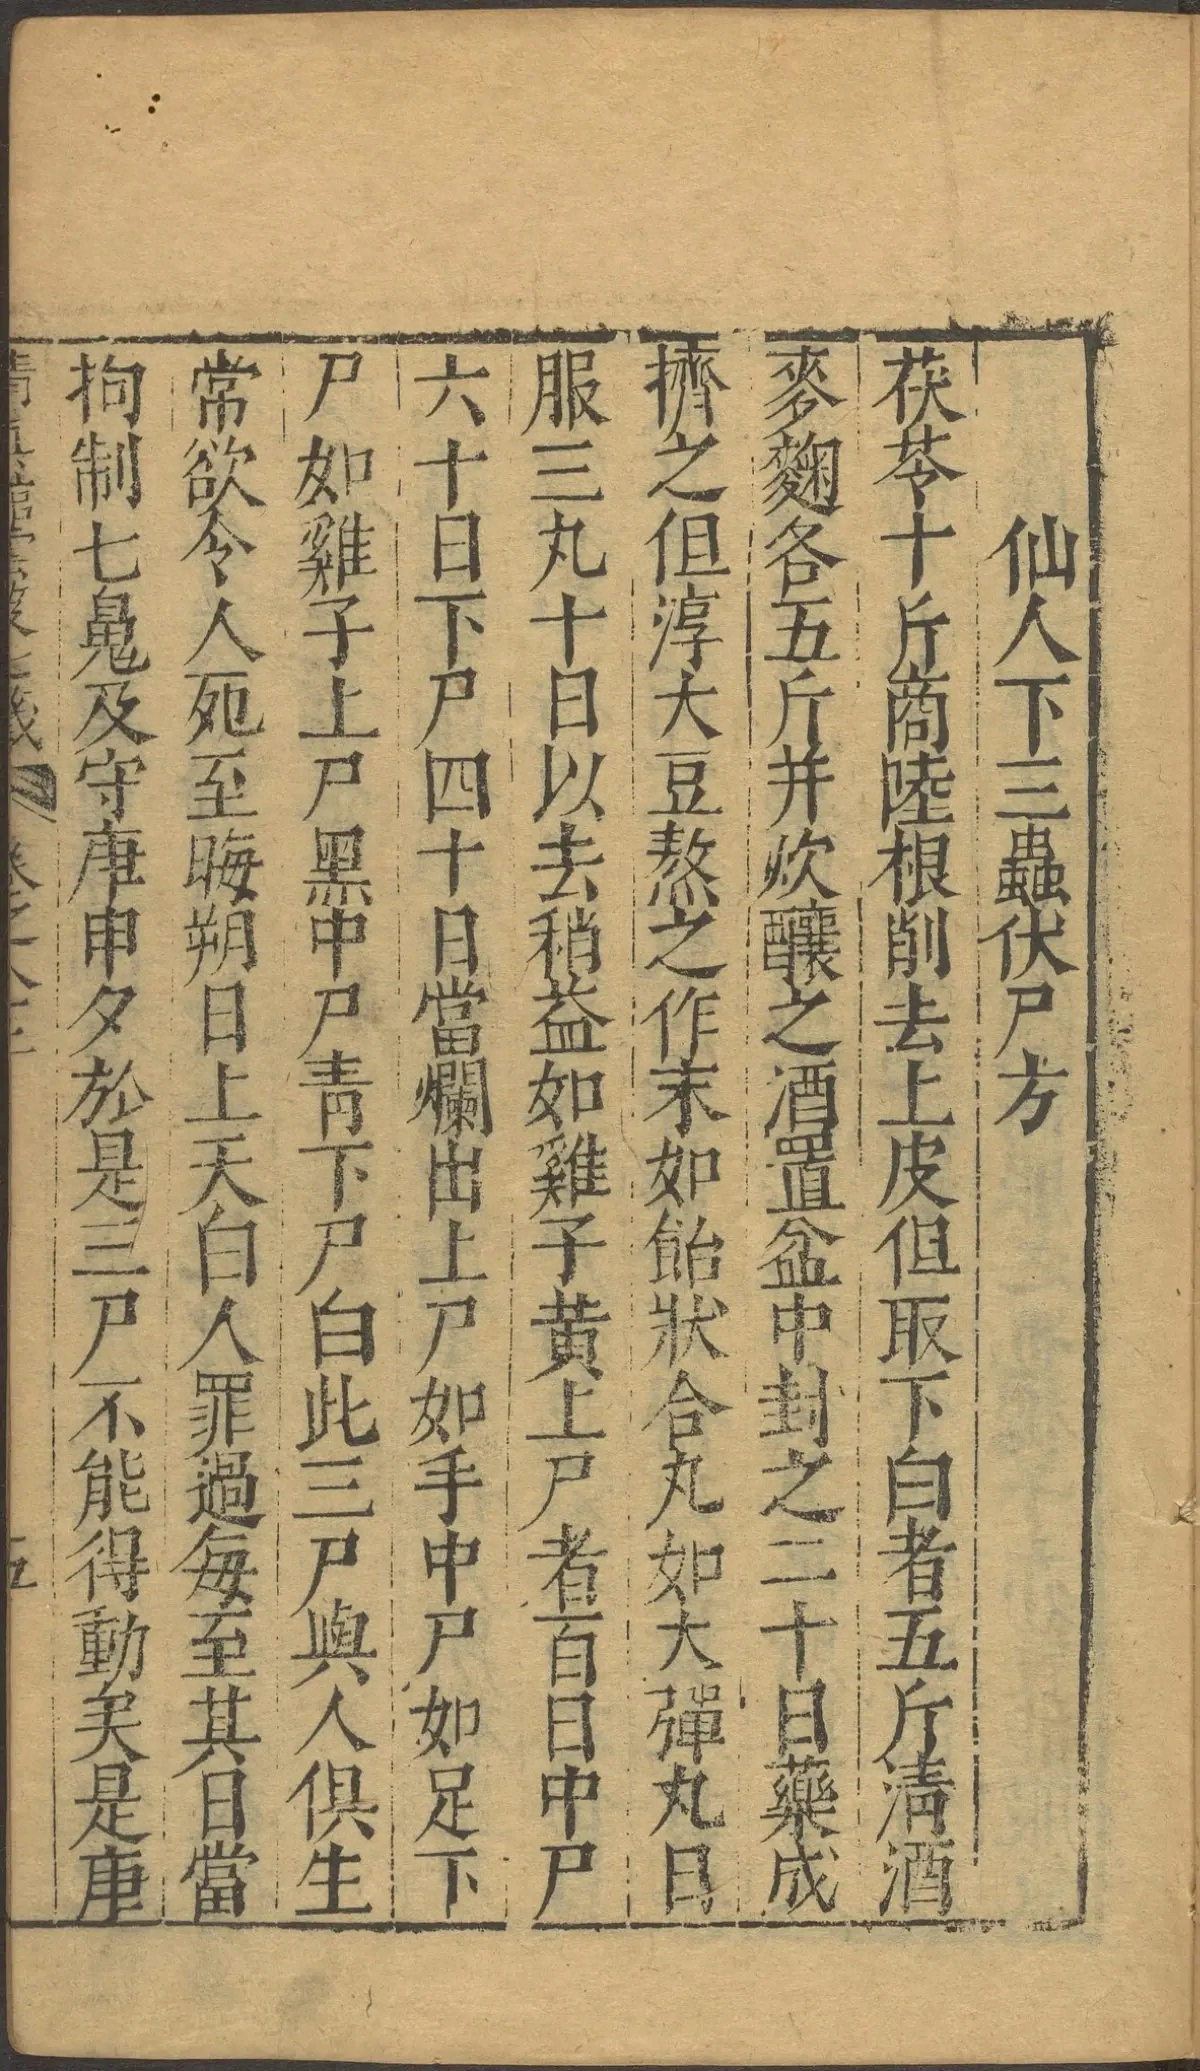 仙人下三蟲伏尸方
茯苓十斤商陸根削去上皮但取下白者五斤淸酒
麥麴各五斤并炊釀之酒置盆中封之二十日藥成
擠之但淳大豆熬之作末如飴狀合丸如大彈丸日
服三丸十日以去稍益如雞子黄上尸者百日中尸
六十日下尸四十日當爛出上尸如手中尸如足下
尸如雞子上尸黑中尸靑下尸白此三尸與人俱生
常欲令人死至晦朔日上天白人罪過每至其日當
拘制七䰟及守庚申夕於是三尸不能得動矣是庚
五